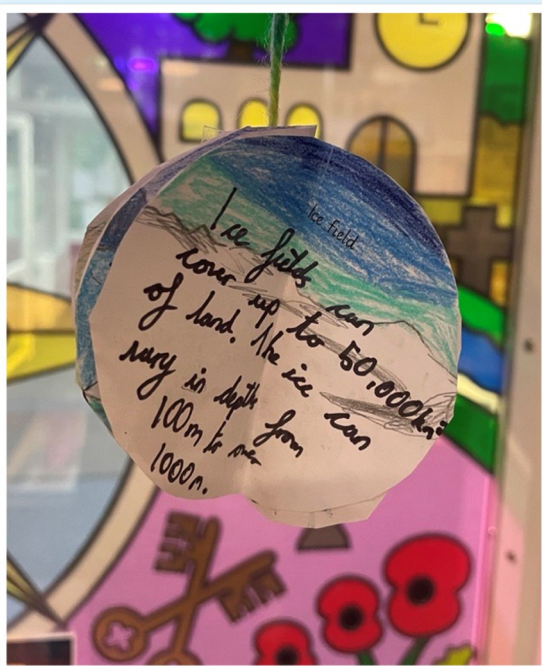 Ice field
Ice fields can
cover up to 50,000km²
of land. The ice can
vary in depth from
100m to over
1000m.